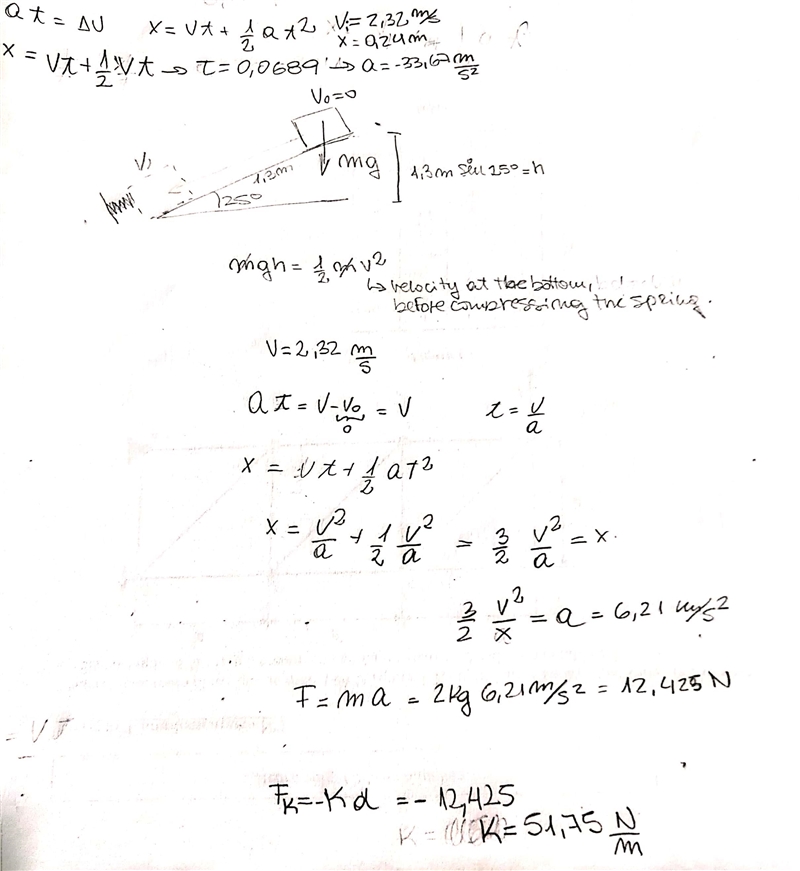 at = Δv x = vt + 1/2 at² Vi = 2,32 m/s
x = 0,24m
x = vt + 1/2 vt → t = 0,0689 → a = -33,67 m/s²
V₀=0
1,2m
mg
1,3m sin 250 = h
250
mgh = 1/2 mv²
↳ velocity at the bottom,
before compressing the spring.
V = 2,32 m/s
at = V - V₀ = V t = V/a
0
x = vt + 1/2 at²
x = V²/a + 1/2 V²/a = 3/2 V²/a = x
3/2 V²/x = a = 6,21 m/s²
F = ma = 2kg 6,21 m/s² = 12,425 N
Fk = -Kd = -12,425
K = 51,75 N/m